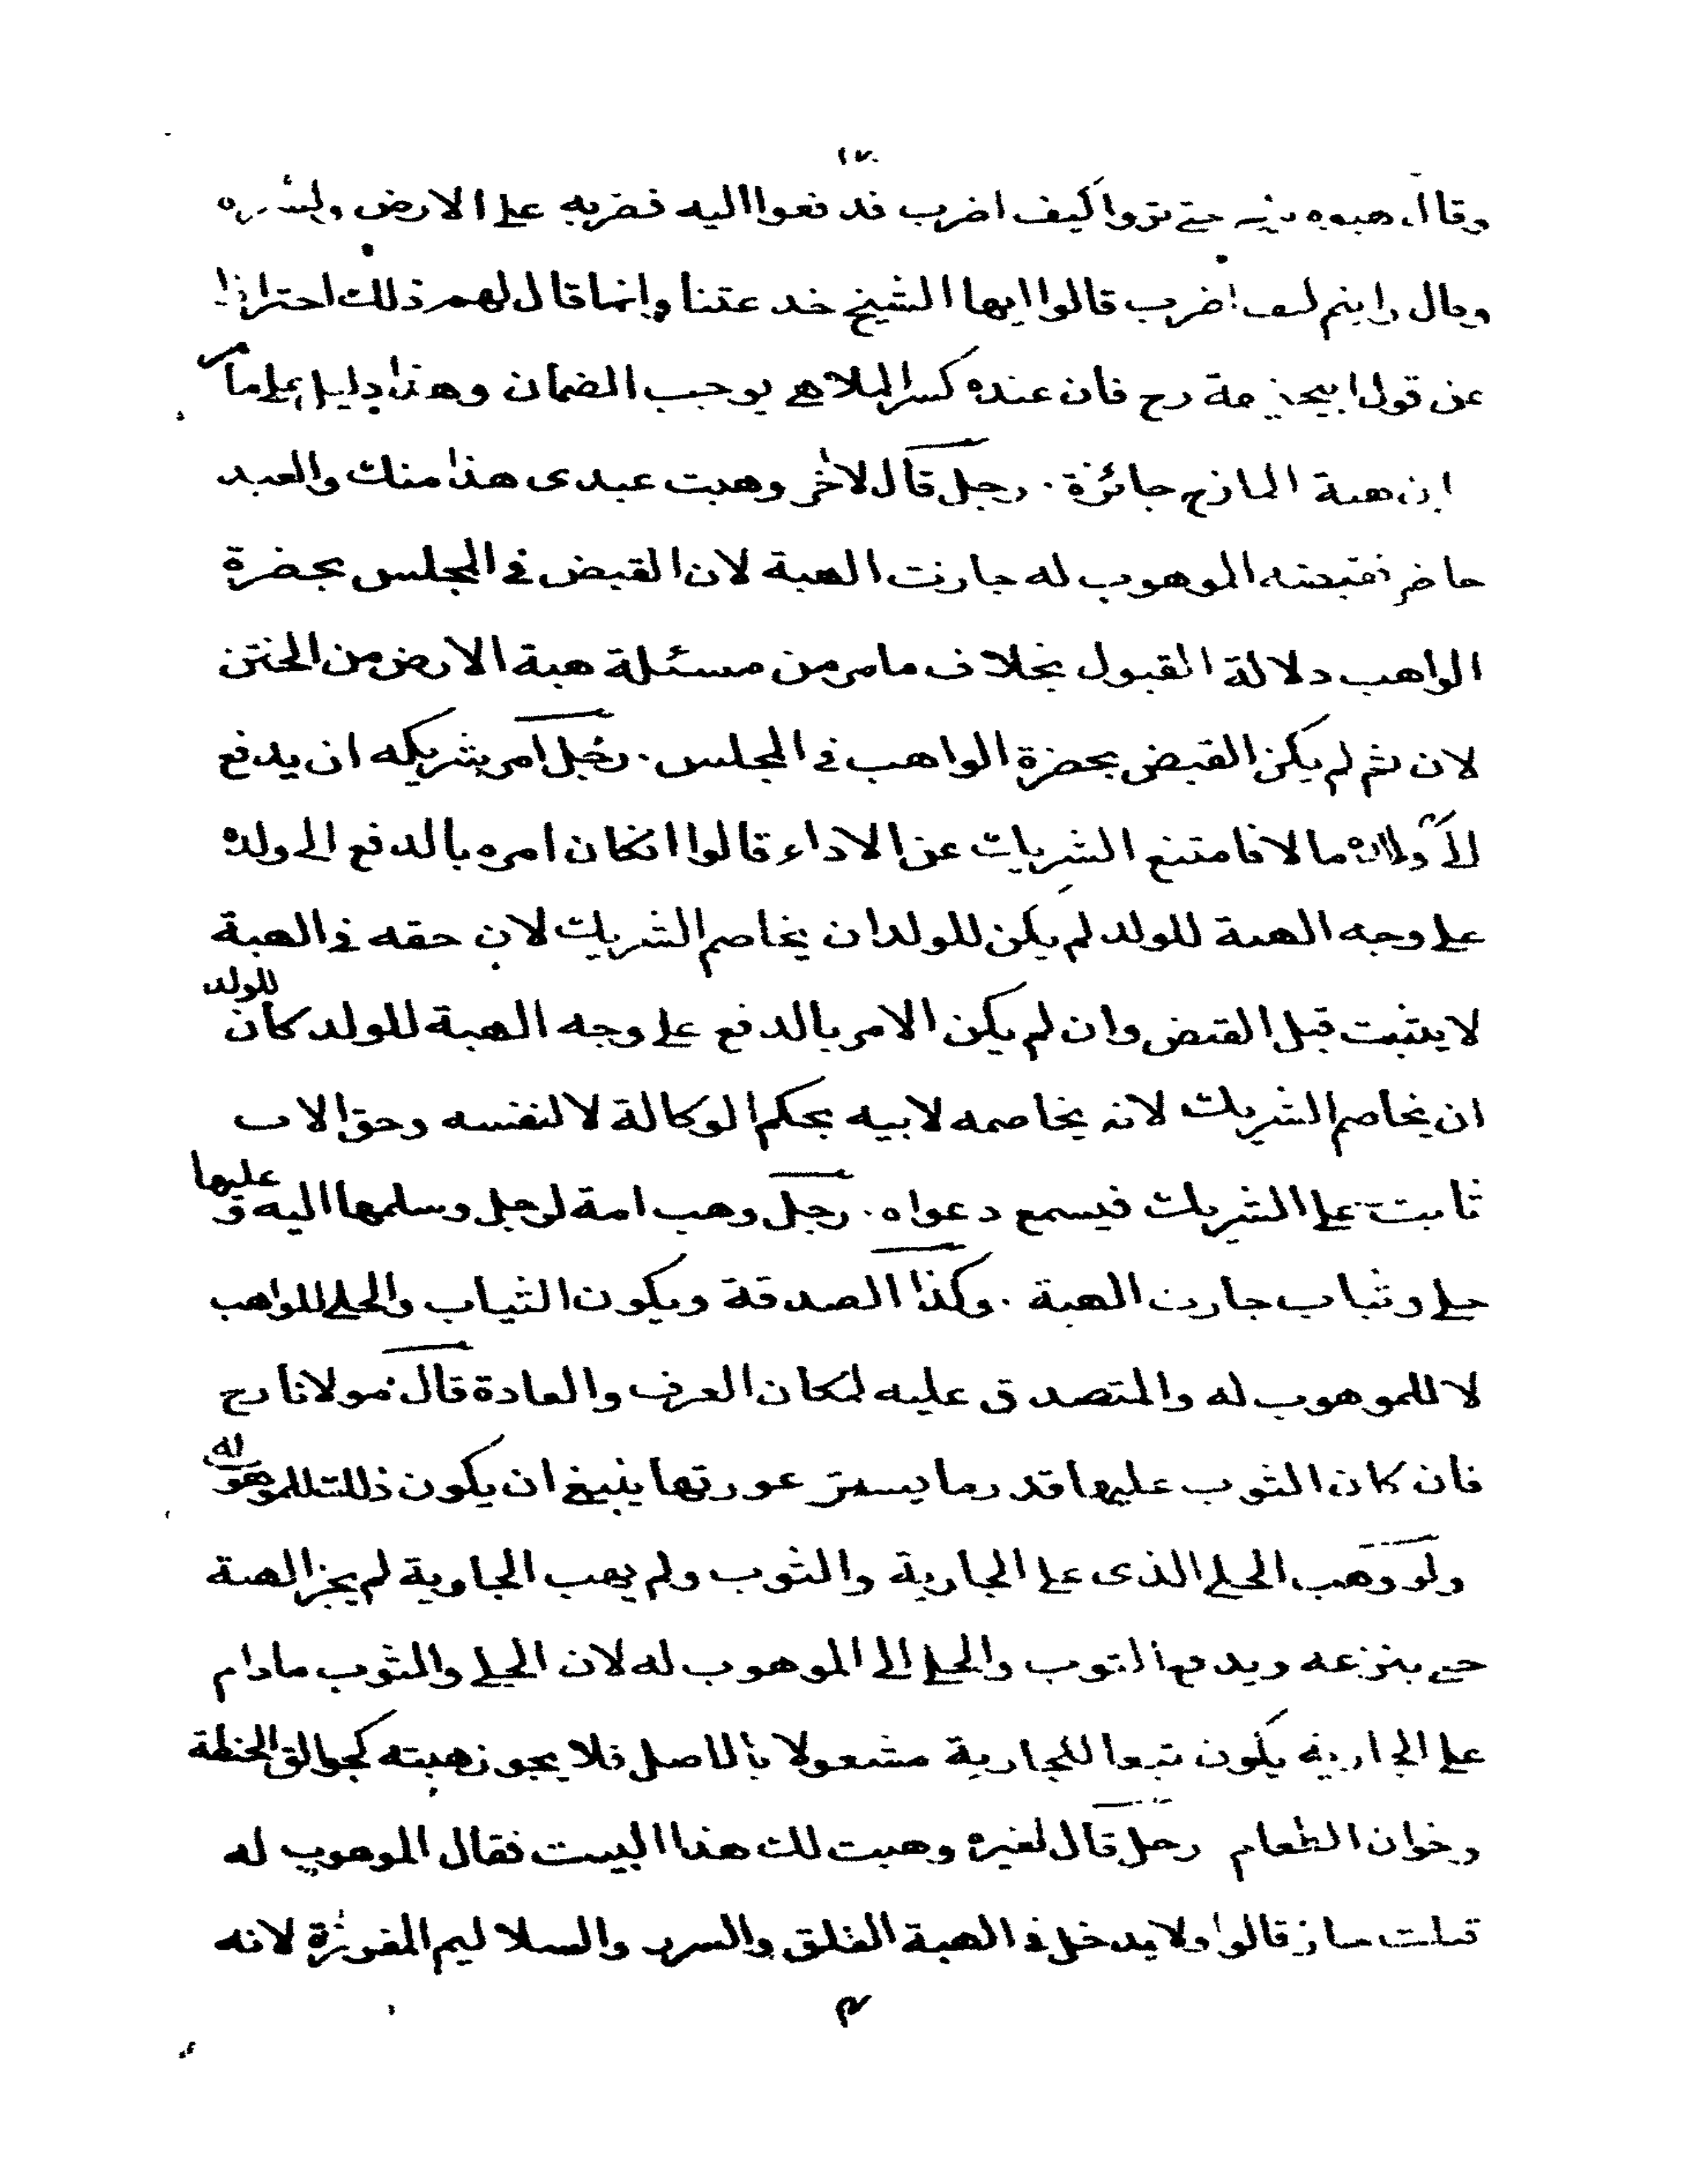 وقال هبوه منى حتى تروا كيف اضرب فدفعوا اليه فضربه على الارض وكسره
وقال رايتم كيف اضرب قالوا ايها الشيخ خدعتنا وانما قال لهم ذلك احترازا
عن قول ابيحنيفة رح فان عنده كسر الملاهى يوجب الضمان وهذا دليل على ما مر
ان هبة المازح جائزة . رجل قال لاخر وهبت عبدى هذا منك والعبد
حاضر فقبضه الموهوب له جازت الهبة لان القبض فى المجلس بحضرة
الواهب دلالة القبول بخلاف ما مر من مسئلة هبة الارض من الختن
لان ثم لم يكن القبض بحضرة الواهب فى المجلس . رجل امر شريكه ان يدفع
الى ولده مالا فامتنع الشريك عن الاداء قالوا انكان امره بالدفع الى ولده
على وجه الهبة للولد لم يكن للولد ان يخاصم الشريك لان حقه فى الهبة
لا يثبت قبل القبض وان لم يكن الامر بالدفع على وجه الهبة للولد كان للولد
ان يخاصم الشريك لانه يخاصمه لابيه بحكم الوكالة لا لنفسه وحق الاب
ثابت على الشريك فيسمع دعواه . رجل وهب امة لرجل وسلمها اليه و عليها
حلى وثياب جازت الهبة . وكذا الصدقة ويكون الثياب والحلى للواهب
لا للموهوب له والمتصدق عليه لمكان العرف والعادة قال مولانا رح
فان كان الثوب عليها قدر ما يستر عورتها ينبغى ان يكون ذلك للموهو له
ولو وهب الحلى الذى على الجارية والثوب ولم يهب الجارية لم يجز الهبة
حتى ينزعه ويدفع الثوب والحلى الى الموهوب له لان الحلى والثوب مادام
على الجارية يكون تبعا للجارية مشغولا بالاصل فلا يجوز هبته كجوالق الحنطة
وخوان الطعام رجل قال لغيره وهبت لك هذا البيت فقال الموهوب له
قبلت جاز قالوا ولا يدخل فى الهبة الغلق والسرر والسلاليم المغروزة لانه